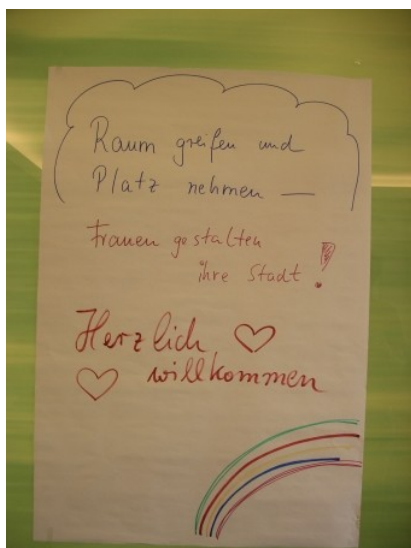 Raum greifen und
Platz nehmen —
Frauen gestalten
ihre Stadt!
Herzlich
willkommen